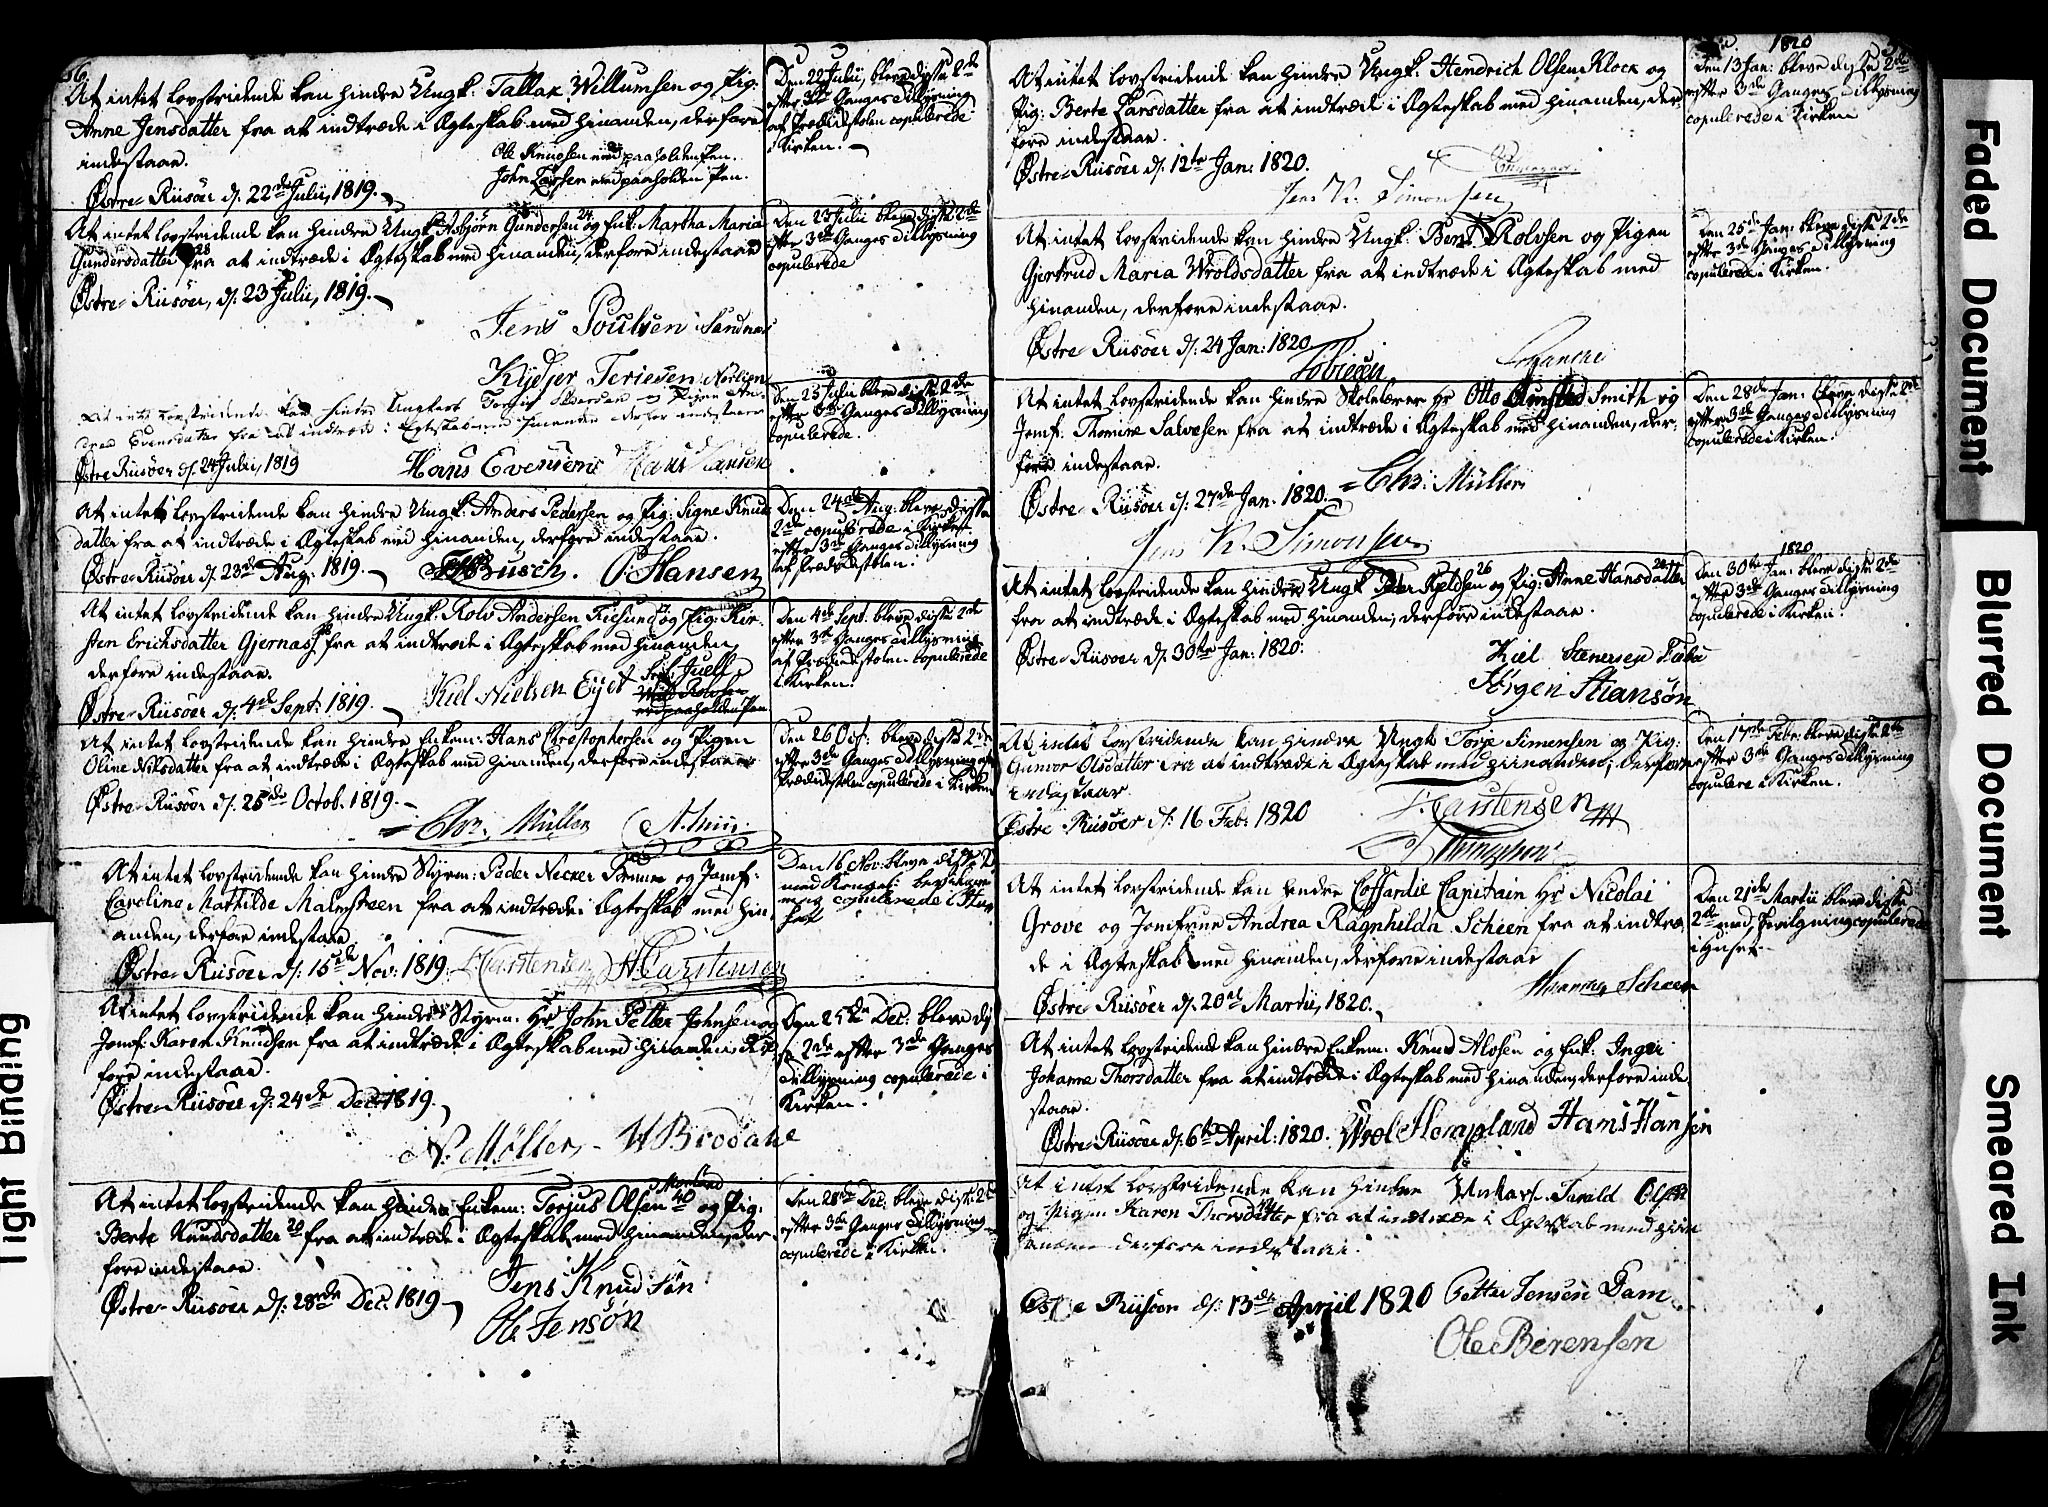 56.
At intet lovstridende kan hindre Ungk: Tallak Willumsen og Pig:
Anne Jensdatter fra at indtræde i Ægteskab med hinanden, derfore
indestaae.
Ole Knudsen med paaholden Pen.
John Larsen med paaholden Pen.
Østre-Riisöer d: 22de Julii, 1819.
Den 22 Julii, bleve disse 2de
efter 3de Ganges Tillysning
af Prædikestolen copulerede
i Kirken.
At intet lovstridende kan hindre Ungk. Asbjørn Gundersen 24 og Enk. Martha Maria
Gundersdatter 28 fra at indtræde i Ægteskab med hinanden, derfore indestaae
Østre-Riisöer, d: 23 Julii, 1819.
Jens Poulsen Sandnæs
Terjesen
Den 23 Julii bleve disse 2de
efter 3de Ganges Tillysning
copulerede
At intet lovstridende kan hindre Ungkarl og Pigen
Evensdatter fra at indtræde i Ægteskab med hinanden derfor indestaaer
Østre Riisöer d: 24 Julii, 1819
Hans Evensen Hans Hansen
Den 25 Julii bleve disse 2de
efter 3de Ganges Tillysning
copulerede.
At intet lovstridende kan hindre Ungk: Anders Pedersen og Pig: Signe Knuds
datter fra at indtræde i Ægteskab med hinanden, derfore indestaae.
Østre-Riisöer d: 23de Aug: 1819. Busch. P: Hansen
Den 24de Aug: bleve disse
2de copulerede i Kirken
efter 3de Ganges Tillysning
af Prædikestolen.
At intet lovstridende kan hindre Ungk: Rolv Andersen og Pig: Kir-
sten Erichsdatter Gjernæs fra at indtræde i Ægteskab med hinanden
derfore indestaae.
Østre-Riisöer d: 4de Sept: 1819.
Kiel Nielsen
Juell
Rolvsen
med paaholden Pen
Den 4de Sept: bleve disse 2de
efter 3de Ganges Tillysning
af Prædikestolen copulerede
i Kirken.
At intet lovstridende kan hindre Enkem: Hans Christophersen og Pigen
Oline Nilsdatter fra at indtræde i Ægteskab med hinanden, derfore indestaaer
Østre-Riisöer d: 25de Octob. 1819.
Chr: Müller
Den 26 Oct: bleve disse 2de
efter 3de Ganges Tillysning af
Prædikestolen copulerede i Kirken
At intet lovstridende kan hindre Styrm: Peder Necker og Jomf:
Caroline Mathilde Malmsteen fra at indtræde i Ægteskab med hin-
anden, derfore indestaae
Østre-Riisöer d: 15de Nov: 1819. Carstensen Carstensen
Den 16 Nov: bleve disse 2de
med Kongel: bevilgning
copulerede i Hu-
set
At intet lovstridende kan hindre Styrm: Hr John Petter Johnsen og
Jomf: Karen Knudsen fra at indtræde i Ægteskab med hinanden, der-
fore indestaae.
Østre-Riisöer d: 24de Dec: 1819.
N: Møller
Den 25de Dec: bleve dis-
se 2de efter 3de Ganges
Tillysning copulerede i
Kirken.
At intet lovstridende kan hindre Enkem: Torjus Olsen 40 og Pig:
Berte Knudsdatter 20 fra at indtræde i Ægteskab med hinanden, der-
fore indestaae.
Østre-Riisöer d: 28nde Dec: 1819
Jens Knudsøn
Ole Jensøn
Den 28de Dec: bleve disse 2de
efter 3de Ganges Tillysning
copulerede i Kirken.
At intet lovstridende kan hindre Ungk: Hendrich Olsen Klock og
Pig: Berte Larsdatter fra at indtræde i Ægteskab med hinanden, der
fore indestaae.
Østre-Riisöer d: 12te Jan: 1820.
Jens K. Simonsen
1820
Den 13 Jan: bleve disse 2de
efter 3de Ganges Tillysning
copulerede i Kirken
At intet lovstridende kan hindre Ungk: Bent Rolvsen og Pigen
Gjertrud Maria Wroldsdatter fra at indtræde i Ægteskab med
hinanden, derfore indestaae.
Østre-Riisöer d: 24 Jan: 1820
Tobiesen
Den 25de Jan: bleve disse 2de
efter 3de Ganges Tillysning
copulerede i Kirken.
At intet lovstridende kan hindre Skolelærer Hr Otto Smith og
Jomf. Thomine Salvesen fra at indtræde i Ægteskab med hinanden, der-
fore indestaae.
Østre-Riisöer d: 27de Jan: 1820. Chr: Müller
Jens K. Simonsen
Den 28de Jan: bleve disse 2de
efter 3de Ganges Tillysning
copulerede i Kirken.
At intet lovstridende kan hindre Ungk Peder Kjeldsen 26 og Pig: Anne Hansdatter
fra at indtræde i Ægteskab med hinanden, derfore indestaae.
Østre-Riisöer d: 30te Jan: 1820.
Kiel Stenersen
Jørgen
1820
Den 30te Jan: bleve disse 2de
efter 3de Ganges Tillysning
copulerede i Kirken.
At intet lovstridende kan hindre Ungk Torje Simensen og Pig:
Gunvor Olsdatter fra at indtræde i Ægteskab med hinanden, derfore
indestaar
Østre Riisöer d: 16 Feb: 1820
Carstensen
Den 17de Febr: bleve disse 2de
efter 3de Ganges Tillysning
copulere i Kirken.
At intet lovstridende kan hindre Coffardie Capitain Hr Nicolai
Grove og Jomfrue Andrea Ragnhilda Scheen fra at indtræ-
de i Ægteskab med hinanden, derfore indestaae
Østre-Riisöer d: 20de Martii, 1820.
Scheen
Den 21de Martii bleve disse
2de med Bevilgning copulerede
i Huset
At intet lovstridende kan hindre Enkem: Knud Alvsen og Enk: Inger
Johanne Thorsdatter fra at indtræde i Ægteskab med hinanden, derfore inde
staae.
Østre-Riisöer d: 6te April: 1820. Hans Hansen
At intet lovstridende kan hindre Unkarl Tarald Olsen
og Pigen Karen Thorsdatter fra at indtræde i Ægteskab med hin
anden derfore indestaae.
Østre Riisöer d: 13de Apriil 1820 Petter Jensen Dam
Ole Berensen
Tight Binding
Faded Document
Blurred Document
Smeared Ink